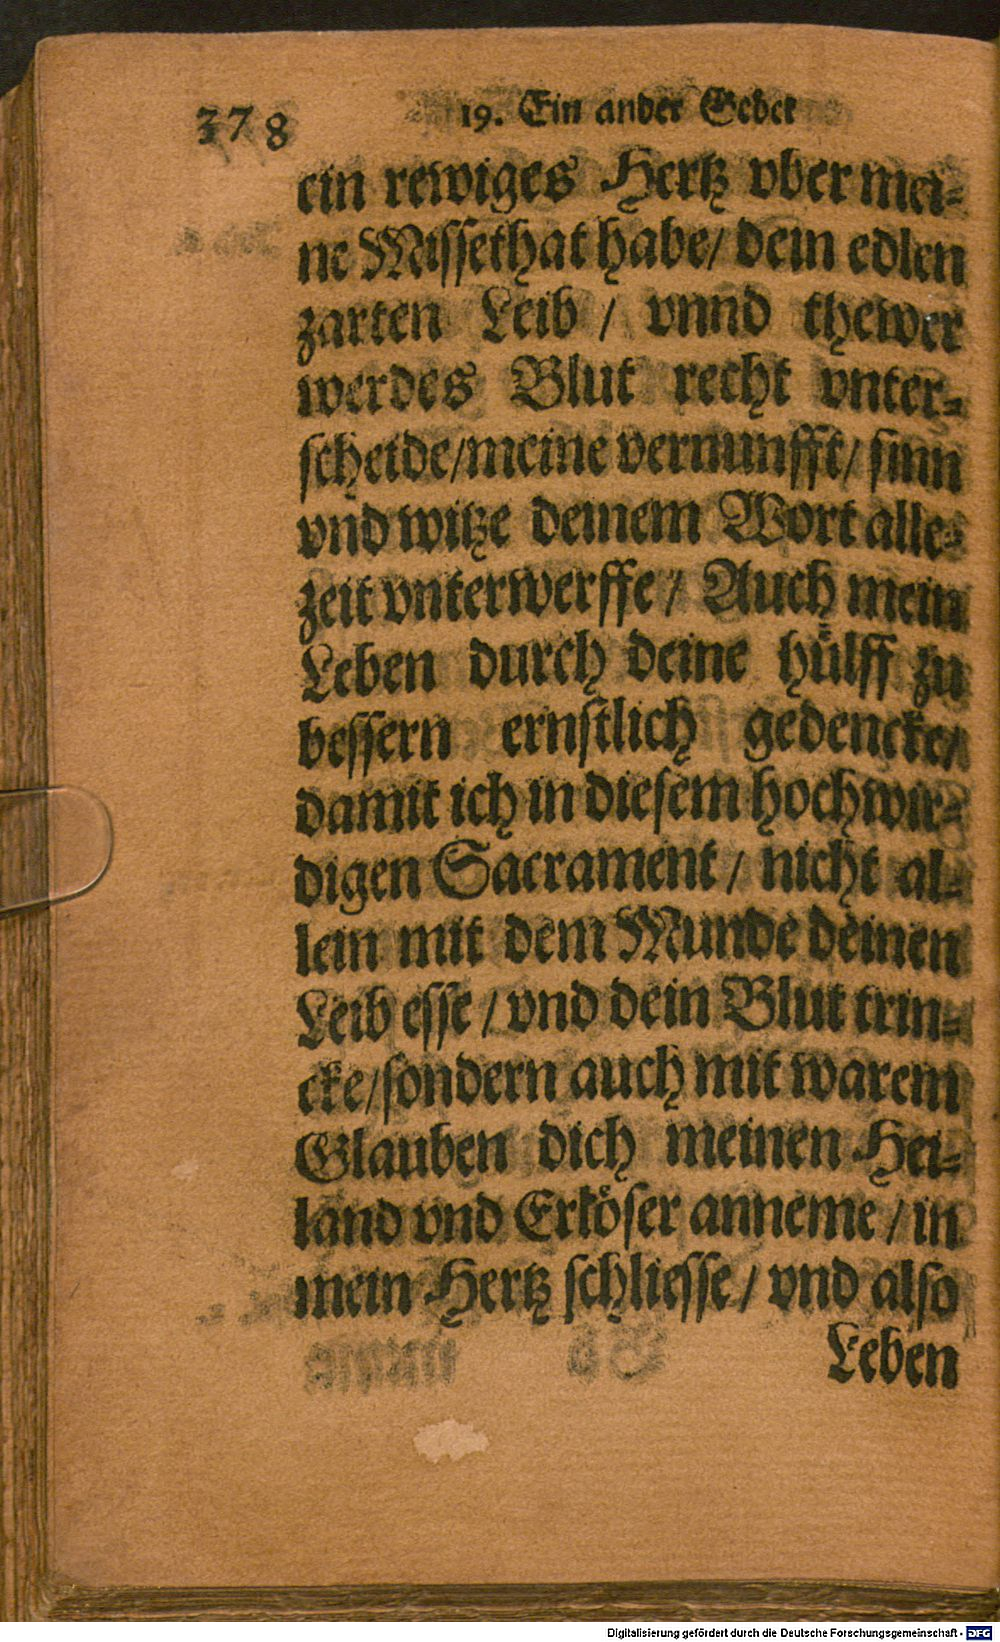 378 19. Ein ander Gebet
ein rewiges Hertz vber mei⸗
ne Missethat habe/ dein edlen
zarten Leib / vnnd thewer
werdes Blut recht vnter⸗
scheide/meine vernunfft/ sinn
vnd witze deinem Wort alle⸗
zeit vnterwerffe / Auch mein
Leben durch deine hülff zu
bessern ernstlich gedencke/
damit ich in diesem hochwir⸗
digen Sacrament / nicht al⸗
lein mit dem Munde deinen
Leib esse / vnd dein Blut trin⸗
cke/sondern auch mit warem
Glauben dich meinen Hei⸗
land vnd Erlöser anneme / in
mein Hertz schliesse / vnd also
Leben
Digitalisierung gefördert durch die Deutsche Forschungsgemeinschaft - DFG